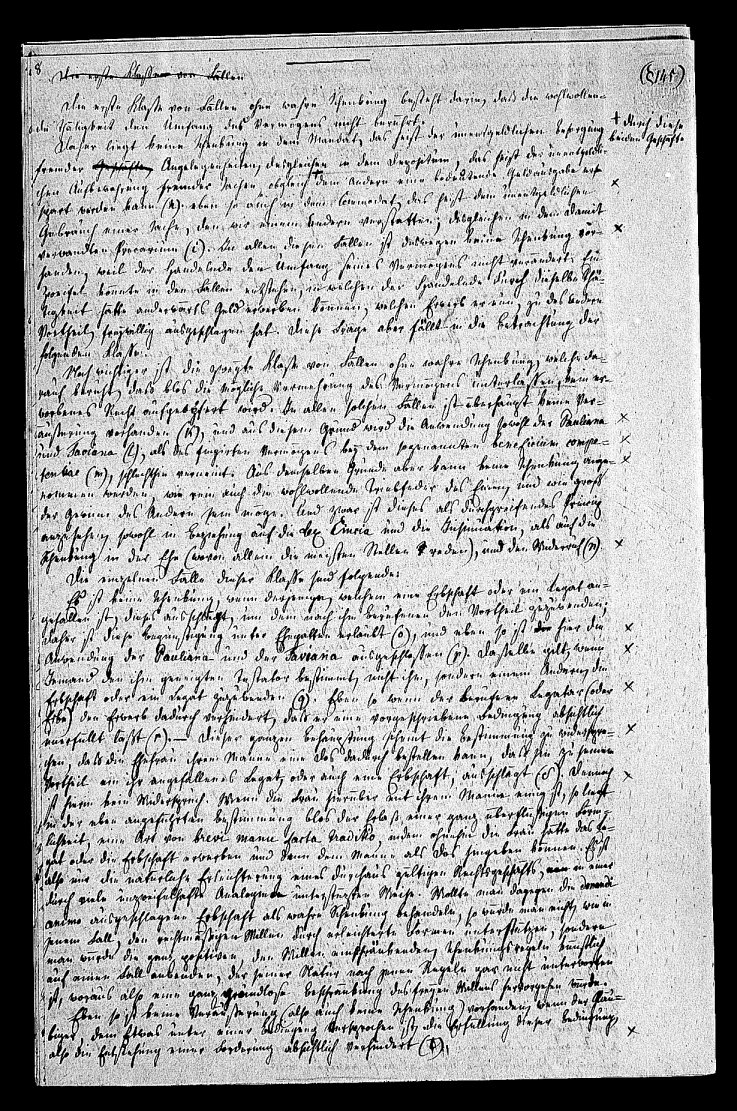 8
(§ 145)
Die erste Klasse von Fällen
Die erste Klasse von Fällen ohne wahre Schenkung besteht darin, daß die wohlwollen-
de Thätigkeit den Umfang des Vermögens nicht berührt.
Daher liegt keine Schenkung in dem Mandat, das heißt der unentgeldlichen Besorgung
† durch diese
beiden Geschäfte
fremder Geschäfte, Angelegenheiten, desgleichen in dem Depositum, das heißt der unentgeldli-
chen Aufbewahrung fremder Sachen, obgleich dem Andern eine bedeutende Geldausgabe erspart
werden kann (h) eben so auch in dem Commodat, das heißt dem unentgeldlichen
Gebrauch einer Sache, den wir einem Andern verstatten; desgleichen in dem damit
verwandten Precarium (i). In allen diesen Fällen ist deswegen keine Schenkung vor-
handen, weil der Handelnde den Umfang seines Vermögens nicht verändert. Ein
Zweifel könnte in den Fällen entstehen, in welchen der Handelnde durch dieselbe Thä-
tigkeit hätte anderwärts Geld erwerben können, welchen Erwerb er nun, zu des Andern
Vortheil, freywillig ausgeschlagen hat. Diese Frage aber fällt in die Betrachtung der
folgenden Klasse.
Noch wichtiger ist die zweyte Klasse von Fällen ohne wahre Schenkung, welche da-
rauf beruht, daß blos die mögliche Vermehrung des Vermögens unterlassen, kein er-
worbenes Recht aufgeopfert wird. In allen solchen Fällen ist überhaupt keine Ver-
äußerung vorhanden (k), und aus diesem Grund wird die Anwendung sowohl der Pauliana
und Faviana (l), als des fingirten Vermögens bey dem sogenannten beneficium compe-
tentiae (m), schlechthin verneint. Aus demselben Grunde aber kann keine Schenkung ange-
nommen werden, wie rein auch die wohlwollende Triebfeder des Einen, und wie groß
der Gewinn des Andern seyn möge. Und zwar ist dieses als durchgreifendes Princip
anzusehen, sowohl in Beziehung auf die Lex Cincia und die Insinuation, als auf die
Schenkung in der Ehe (wovon allein die meisten Stellen reden), und den Widerruf (n).
Die einzelnen Fälle dieser Klasse sind folgende:
Es ist keine Schenkung, wenn derjenige, welchem eine Erbschaft oder ein Legat an-
gefallen ist, dieses ausschlägt, um dem nach ihm Berufenen den Vortheil zuzuwenden;
daher ist diese Begünstigung unter Ehegatten erlaubt (o), und eben so ist hier die
Anwendung der Pauliana und der Faviana ausgeschlossen (p). Dasselbe gilt, wenn
Jemand den ihm geneigten Testator bestimmt, nicht ihm, sondern einem Andern, die
Erbschaft oder ein Legat zuzuwenden (q). Eben so wenn der berufene Legatar (oder
Erbe) den Erwerb dadurch verhindert, daß er eine vorgeschriebene Bedingung absichtlich
unerfüllt läßt (r). — Dieser ganzen Behauptung scheint die Bestimmung zu widerspre-
chen, daß die Ehefrau ihrem Manne eine Dos dadurch bestellen kann, daß sie zu seinem
Vortheil ein ihr angefallenes Legat, oder auch eine Erbschaft, ausschlägt (s). Dennoch
ist hierin kein Widerspruch. Wenn die Frau hierüber mit ihrem Manne einig ist, so liegt
in der eben angeführten Bestimmung blos der Erlaß, einer ganz überflüssigen Förm-
lichkeit, eine Art von brevi manu facta traditio, indem ohnehin die Frau hätte das Le-
gat oder die Erbschaft erwerben und dann dem Manne als Dos hingeben können. Es ist
also nur die natürliche Erleichterung eines durchaus gültigen Rechtsgeschäfts, in einer
durch viele unzweifelhafte Analogieen unterstützten Weise. Wollte man dagegen die donandi
animo ausgeschlagene Erbschaft als wahre Schenkung behandeln, so würde man nicht, wie in
jenem Fall, den rechtmäßigen Willen durch erleichterte Formen unterstützen, sondern
man würde die ganz positiven, den Willen einschränkenden Schenkungsregeln künstlich
auf einen Fall anwenden, der seiner Natur nach jenen Regeln gar nicht unterworfen
ist, woraus also eine ganz grundlose Beschränkung des freyen Willens hervorgehen würde.
Eben so ist keine Veräußerung (also auch keine Schenkung) vorhanden, wenn der Gläu-
biger, dem Etwas unter einer Bedingung versprochen ist, die Erfüllung dieser Bedingung,
also die Entstehung einer Forderung absichtlich verhindert (t).